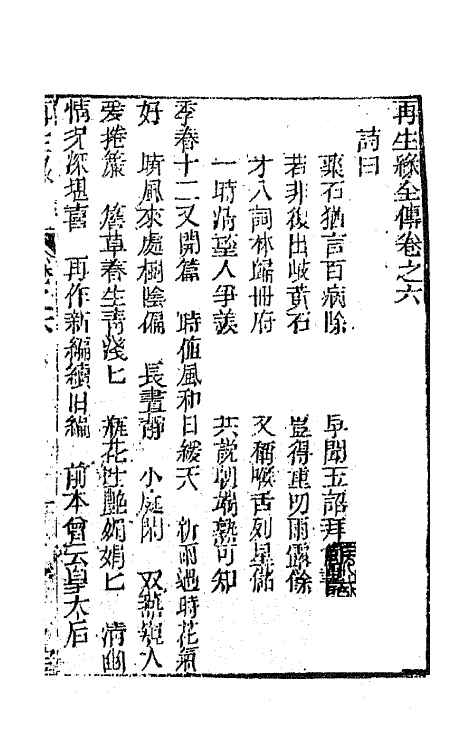 再生緣全傳卷之六
詩曰
藥石猶言百病除　早聞玉詔拜
若非復出岐黃石　豈得重叨雨露餘
才入詞林歸冊府　又稱喉舌列星儲
一時清望人爭羨　共說朝端熱可知
季春十二又開篇　時值風和日緩天　新雨過時花氣
好　晴風來處樹陰偏　長晝靜　小庭閑　双燕窺人
爱捲簾　堦草春生青淺匕　瓶花性艷娟娟匕　清幽
情况深堪喜　再作新編續旧編　前本曾云皇太后